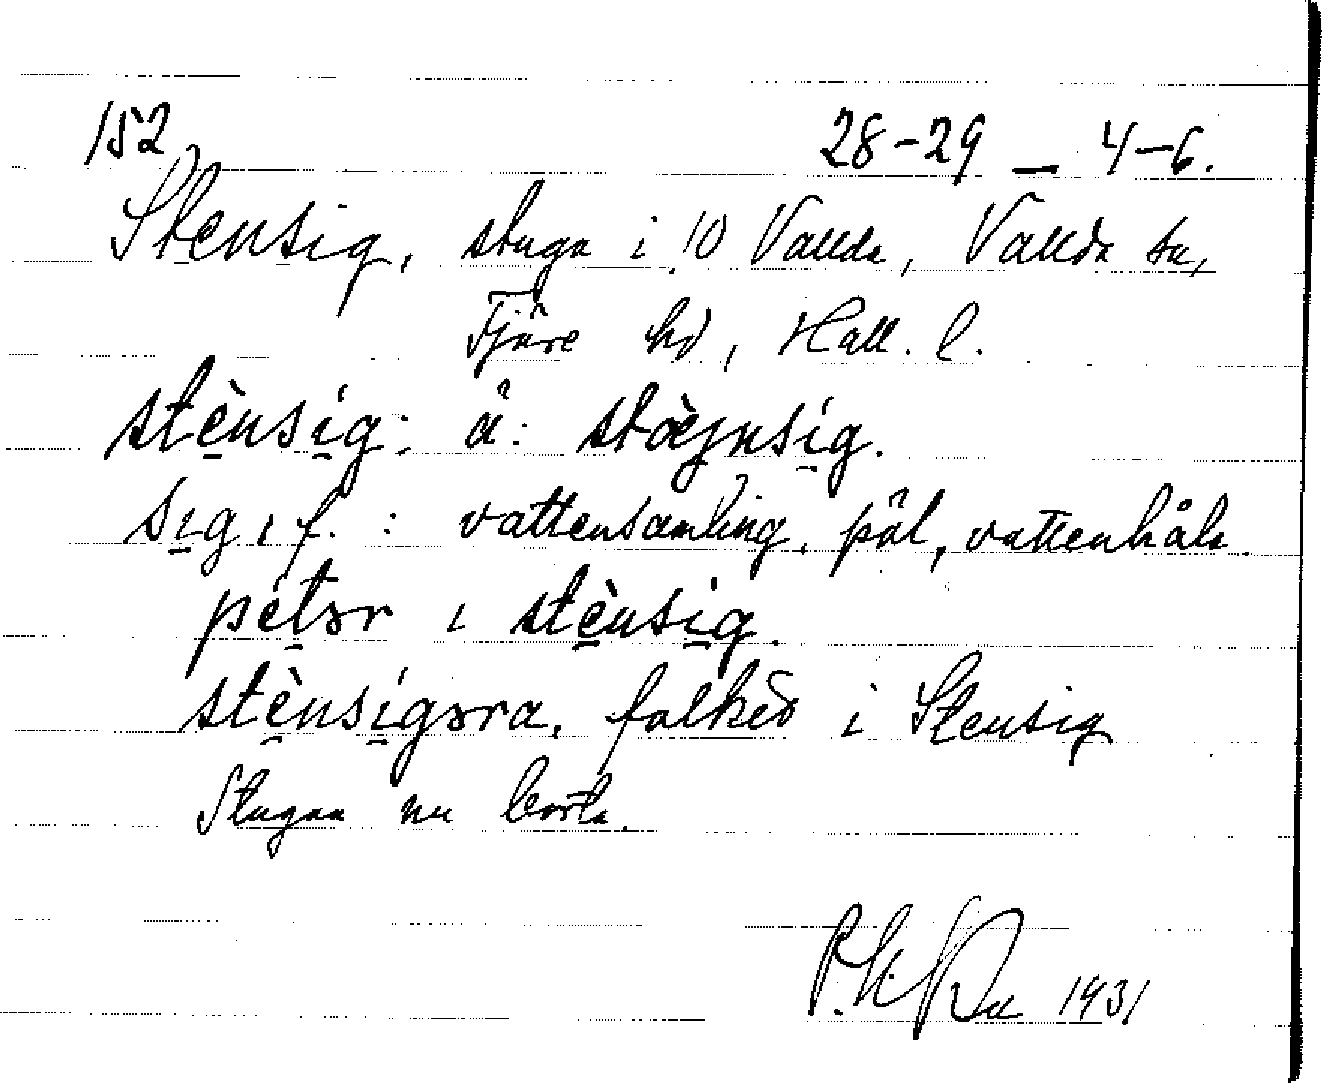 152 28-29 — 4-6.
Stensig, stuga i 10 Vallda, Vallda sn,
Fjäre hd, Hall. l.
stènsíg; ä: stæ̀jnsíg.
sig, f. : vattensamling, pöl, vattenhåla.
pétər i stènsíg.
stènsígəra, folket i Stensig
Stugan nu borta.
1931